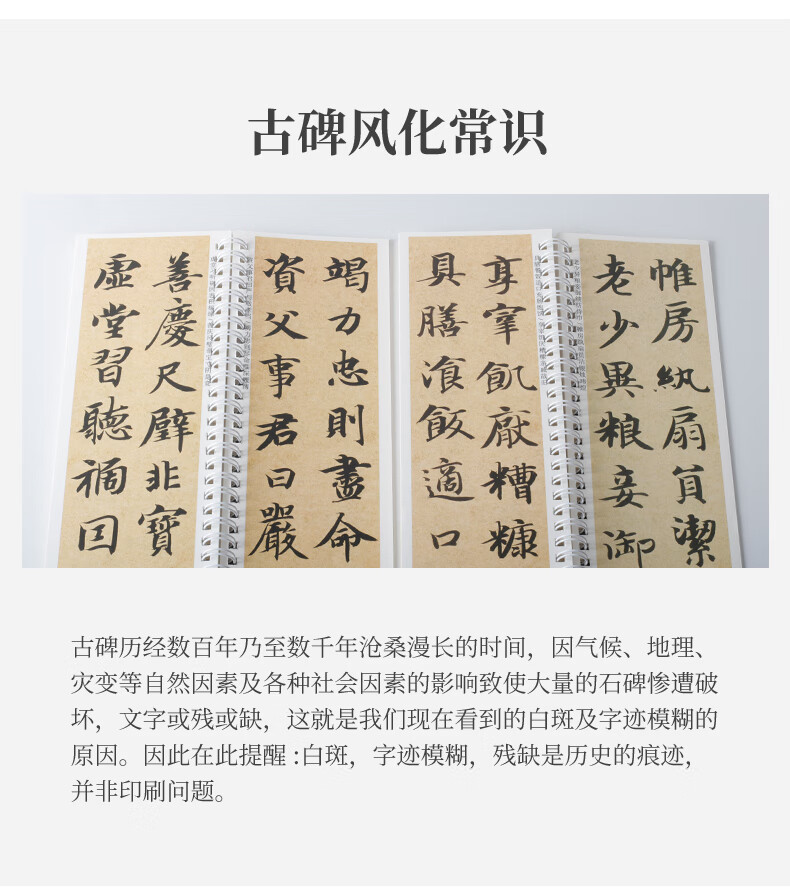 古碑风化常识
虛堂習聽禍囙
善慶尺璧非寶
資父事君曰嚴
竭力忠則盡命
具膳湌飯適口
享宰飢厭糟糠
老少異粮妾御
帷房紈扇員潔
古碑历经数百年乃至数千年沧桑漫长的时间，因气候、地理、
灾变等自然因素及各种社会因素的影响致使大量的石碑惨遭破
坏，文字或残或缺，这就是我们现在看到的白斑及字迹模糊的
原因。因此在此提醒:白斑，字迹模糊，残缺是历史的痕迹，
并非印刷问题。